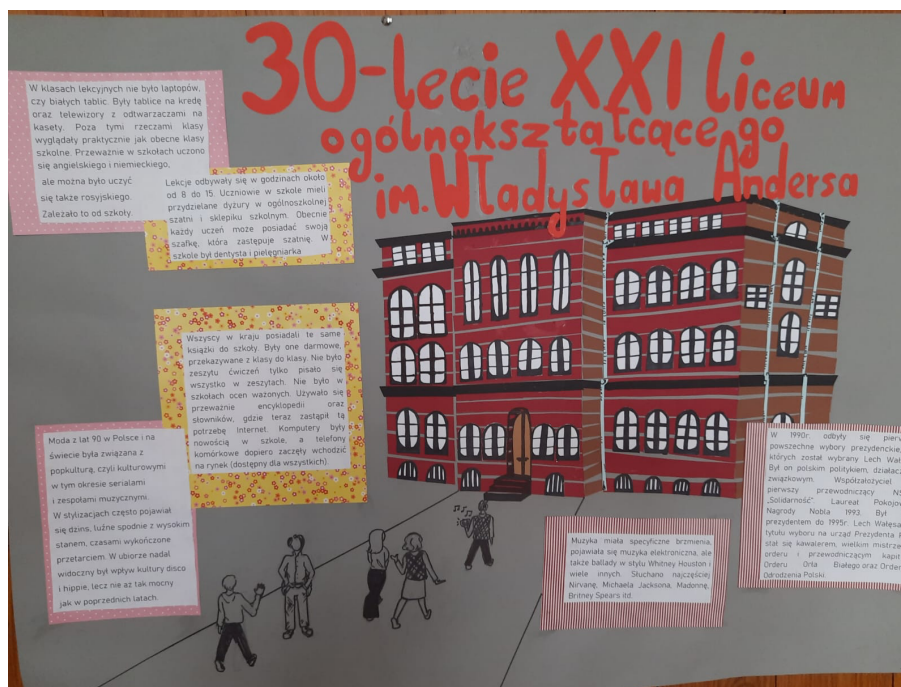 30-lecie XXI liceum
ogólnokształcącego
im. Władysława Andersa
W klasach lekcyjnych nie było laptopów,
czy białych tablic. Były tablice na kredę
oraz telewizory z odtwarzaczami na
kasety. Poza tymi rzeczami klasy
wyglądały praktycznie jak obecne klasy
szkolne. Przeważnie w szkołach uczono
się angielskiego i niemieckiego,
ale można było uczyć
się także rosyjskiego.
Zależało to od szkoły.
Lekcje odbywały się w godzinach około
od 8 do 15. Uczniowie w szkole mieli
przydzielane dyżury w ogólnoszkolnej
szatni i sklepiku szkolnym. Obecnie
każdy uczeń może posiadać swoją
szafkę, która zastępuje szatnię. W
szkole był dentysta i pielęgniarka
Wszyscy w kraju posiadali te same
książki do szkoły. Były one darmowe,
przekazywane z klasy do klasy. Nie było
zeszytu ćwiczeń tylko pisało się
wszystko w zeszytach. Nie było w
szkołach ocen ważonych. Używało się
przeważnie encyklopedii oraz
słowników, gdzie teraz zastąpił tą
potrzebę Internet. Komputery były
nowością w szkole, a telefony
komórkowe dopiero zaczęły wchodzić
na rynek (dostępny dla wszystkich).
Moda z lat 90 w Polsce i na
świecie była związana z
popkulturą, czyli kulturowymi
w tym okresie serialami
i zespołami muzycznymi.
W stylizacjach często pojawiał
się dżins, luźne spodnie z wysokim
stanem, czasami wykończone
przetarciem. W ubiorze nadal
widoczny był wpływ kultury disco
i hippie, lecz nie aż tak mocny
jak w poprzednich latach.
Muzyka miała specyficzne brzmienia,
pojawiała się muzyka elektroniczna, ale
także ballady w stylu Whitney Houston i
wiele innych. Słuchano najczęściej
Nirvanę, Michaela Jacksona, Madonnę,
Britney Spears itd.
W 1990r. odbyły się pierw
powszechne wybory prezydenckie,
których został wybrany Lech Wał
Był on polskim politykiem, działacz
związkowym. Współzałożyciel
pierwszy przewodniczący NS
„Solidarność". Laureat Pokojow
Nagrody Nobla 1993. Był
prezydentem do 1995r. Lech Wałęsa
tytułu wyboru na urząd Prezydenta
stał się kawalerem, wielkim mistrze
orderu i przewodniczącym kapit
Orderu Orła Białego oraz Order
Odrodzenia Polski.